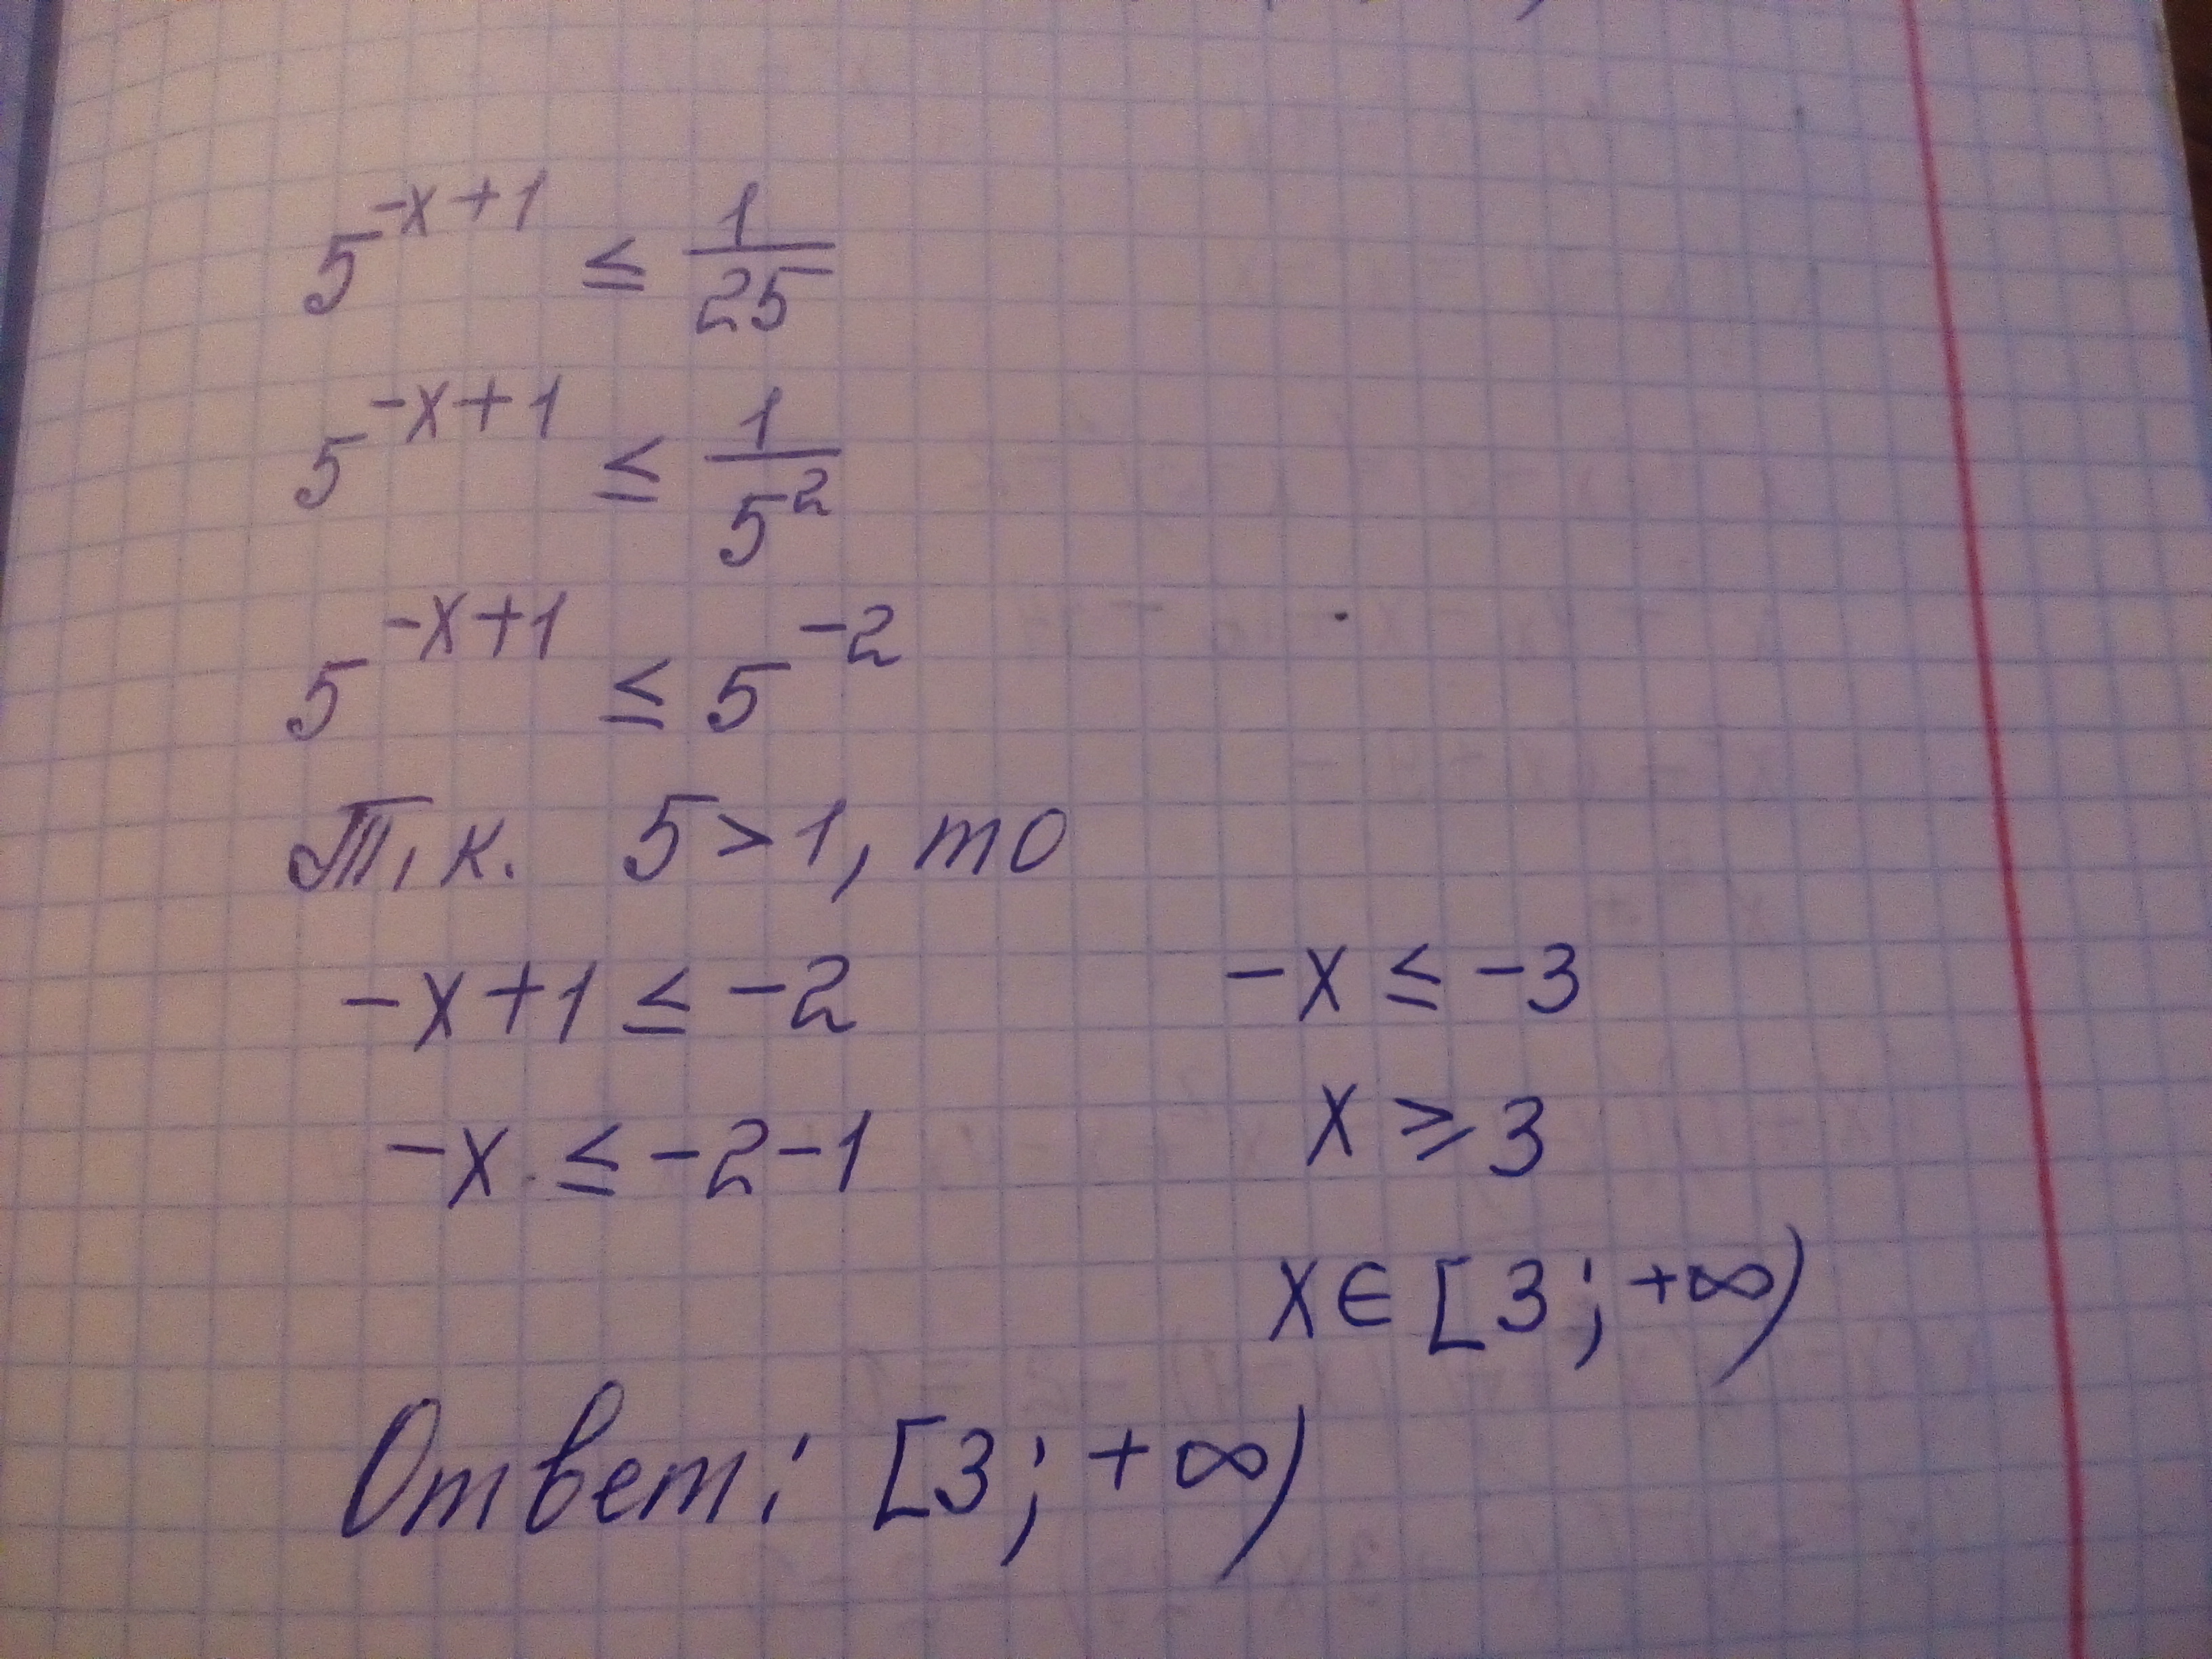 5^{-x+1} ≤ \frac{1}{25}
5^{-x+1} ≤ \frac{1}{5^2}
5^{-x+1} ≤ 5^{-2}
Т. к. 5>1, то
-x+1 ≤ -2
-x ≤ -2-1
-x ≤ -3
x ⩾ 3
x∈[3; +∞)
Ответ: [3; +∞)